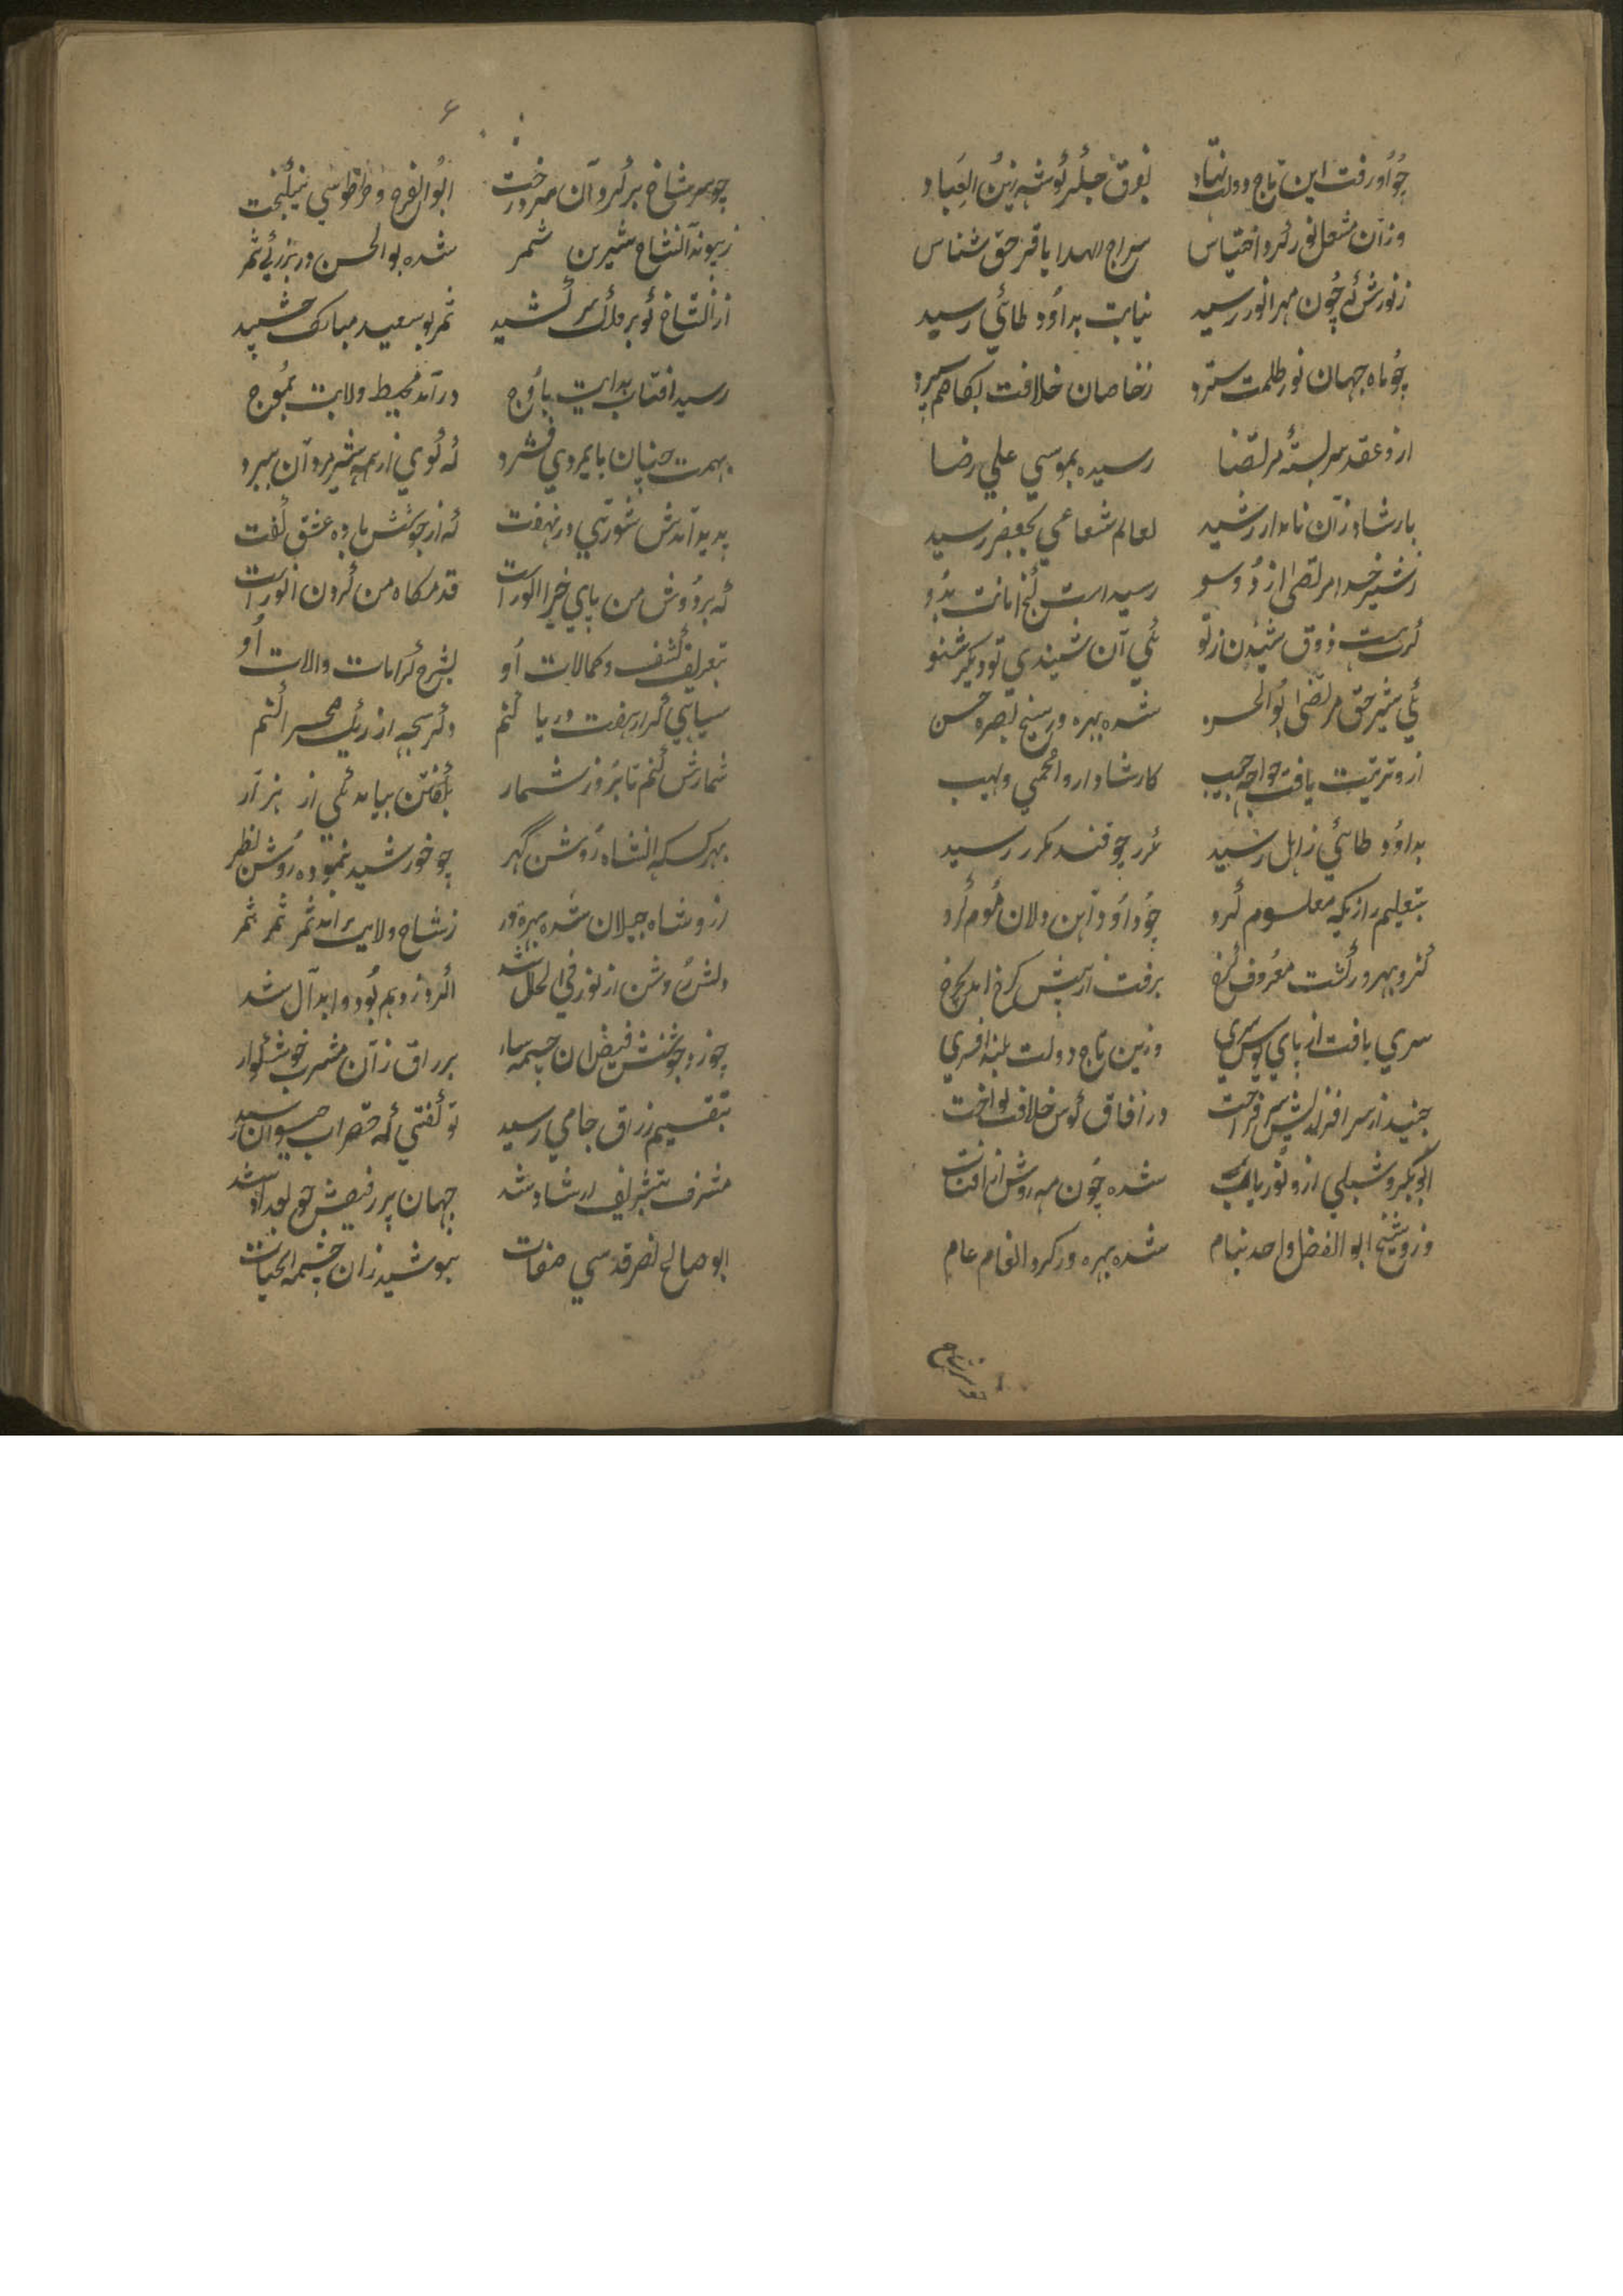 چو او رفت این تاج دولت نهاد بفرق جگر گوشه زین العباد
وزان مشعل نور کرد اقتباس سراج الهدا باقر حق شناس
ز نورش که چون مهر انور رسید نیابت بداود طائی رسید
چو ماه جهان نور ظلمت سترد ز خاصان خلافت بکاظم سپرد
ازو عقد سربسته مرتضا رسیده بموسی علی رضا
بارشاد زان نامدار رشید بعالم شعاعی بجعفر رسید
ز شیر خدا مرتضی از دو سو رسید است گنج امانت بدو
گرت هست ذوق شنیدن ز تو یکی آن شنیدی تو دیگر شنو
یکی شیر حق مرتضی بوالحسن شده بهره ور شیخ بصره حسن
ازو تربیت یافت خواجه حبیب
بداود طائی ز اهل رشید مکرر چو قند مکرر رسید
بتعلیم راز یکه معلوم کرد چو داود آهن دلان موم کرد
کزو بهرور گشت معروف کرخ برفت از پیش کرخ آمد بچرخ
سری یافت از پای بوسش سری وزین تاج دولت بلند افسری
جنید از سر افرازیش سر فراخت در آفاق کوس خلافت نواخت
ابوبکر و شبلی ازو نور یافت شده چون مه روشن از آفتاب
وزو شیخ ابو الفضل واحد بنام شده بهره ور کرد انعام عام
۶
چو سر شاخ بر کرد آن سر درخت ابو الفرح و طرطوسی نیکبخت
ز پیوند آن شاخ شیرین ثمر شده بو الحسن در بزرگی ثمر
از آن شاخ کو بر فلک سر کشید ثمر بو سعید مبارک چشید
رسید آفتاب هدایت باوج در آمد محیط ولایت بموج
بهمت چنان پایمردی فشرد که گوی از همه شیر مردان ببرد
پدید آمدش شورشی در نهفت که از جوشش باده عشق گفت
که بر دوش من پای خیر الوراست قدمگاه من گردن اولیاست
بتعریف کشف و کمالات او بشرح کرامات و الات او
سیاهی گر از هفت دریا کنم وگر سبحه از ریگ صحرا کنم
شمارش کنم تا بروز شمار بگفتن نیاید یکی از هزار
بهر کس که آن شاه روشن گهر چو خورشید نموده روشن نظر
ازو شاه جیلان شده بهره ور ز شاخ ولایت بر آمد ثمر
دلش روشن از نور فی الحال شد اگر دزد هم بود و ابدال شد
چو زد جوشش فیض آن چشمه سار برزاق زان مشرب خوشگوار
بتقسیم رزاق جامی رسید تو گفتی که خضر آب حیوان رسید
مشرف بتشریف ارشاد شد جهان پر ز فیضش چو بغداد شد
ابو صالح نصر قدسی صفات بنوشید زان چشمه الحیات